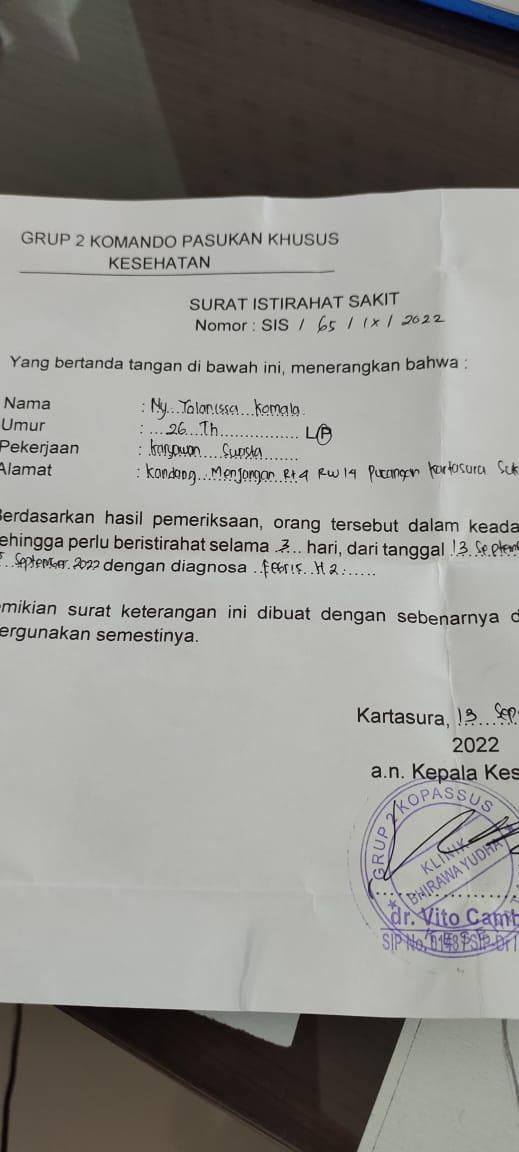 GRUP 2 KOMANDO PASUKAN KHUSUS
KESEHATAN
SURAT ISTIRAHAT SAKIT
Nomor : SIS / 65 / IX / 2022
Yang bertanda tangan di bawah ini, menerangkan bahwa :
Nama : Ny. Komala
Umur : 26 Th L/P
Pekerjaan : karyawan
Alamat : Kandang Menjangan Rt 4 RW 14 Kartasura
Berdasarkan hasil pemeriksaan, orang tersebut dalam keada
ehingga perlu beristirahat selama 3 hari, dari tanggal 13 Septem
September 2022 dengan diagnosa febris H2
mikian surat keterangan ini dibuat dengan sebenarnya d
ergunakan semestinya.
Kartasura, 13 Sep
2022
a.n. Kepala Kes
GRUP 2 KOPASSUS
KLINIK
BHIRAWA YUDHA
dr. Vito Camt
SIP No.